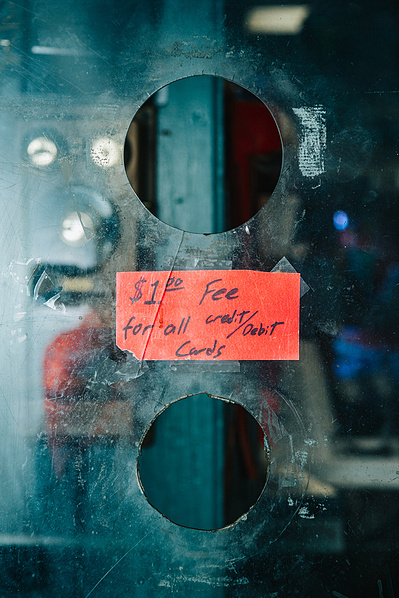 $1.00 Fee
for all credit/Debit
Cards